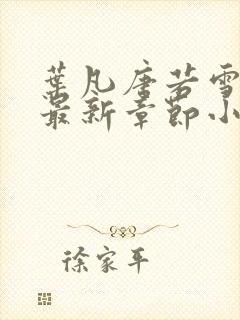 葉凡唐若雪
最新章節小
徐家平